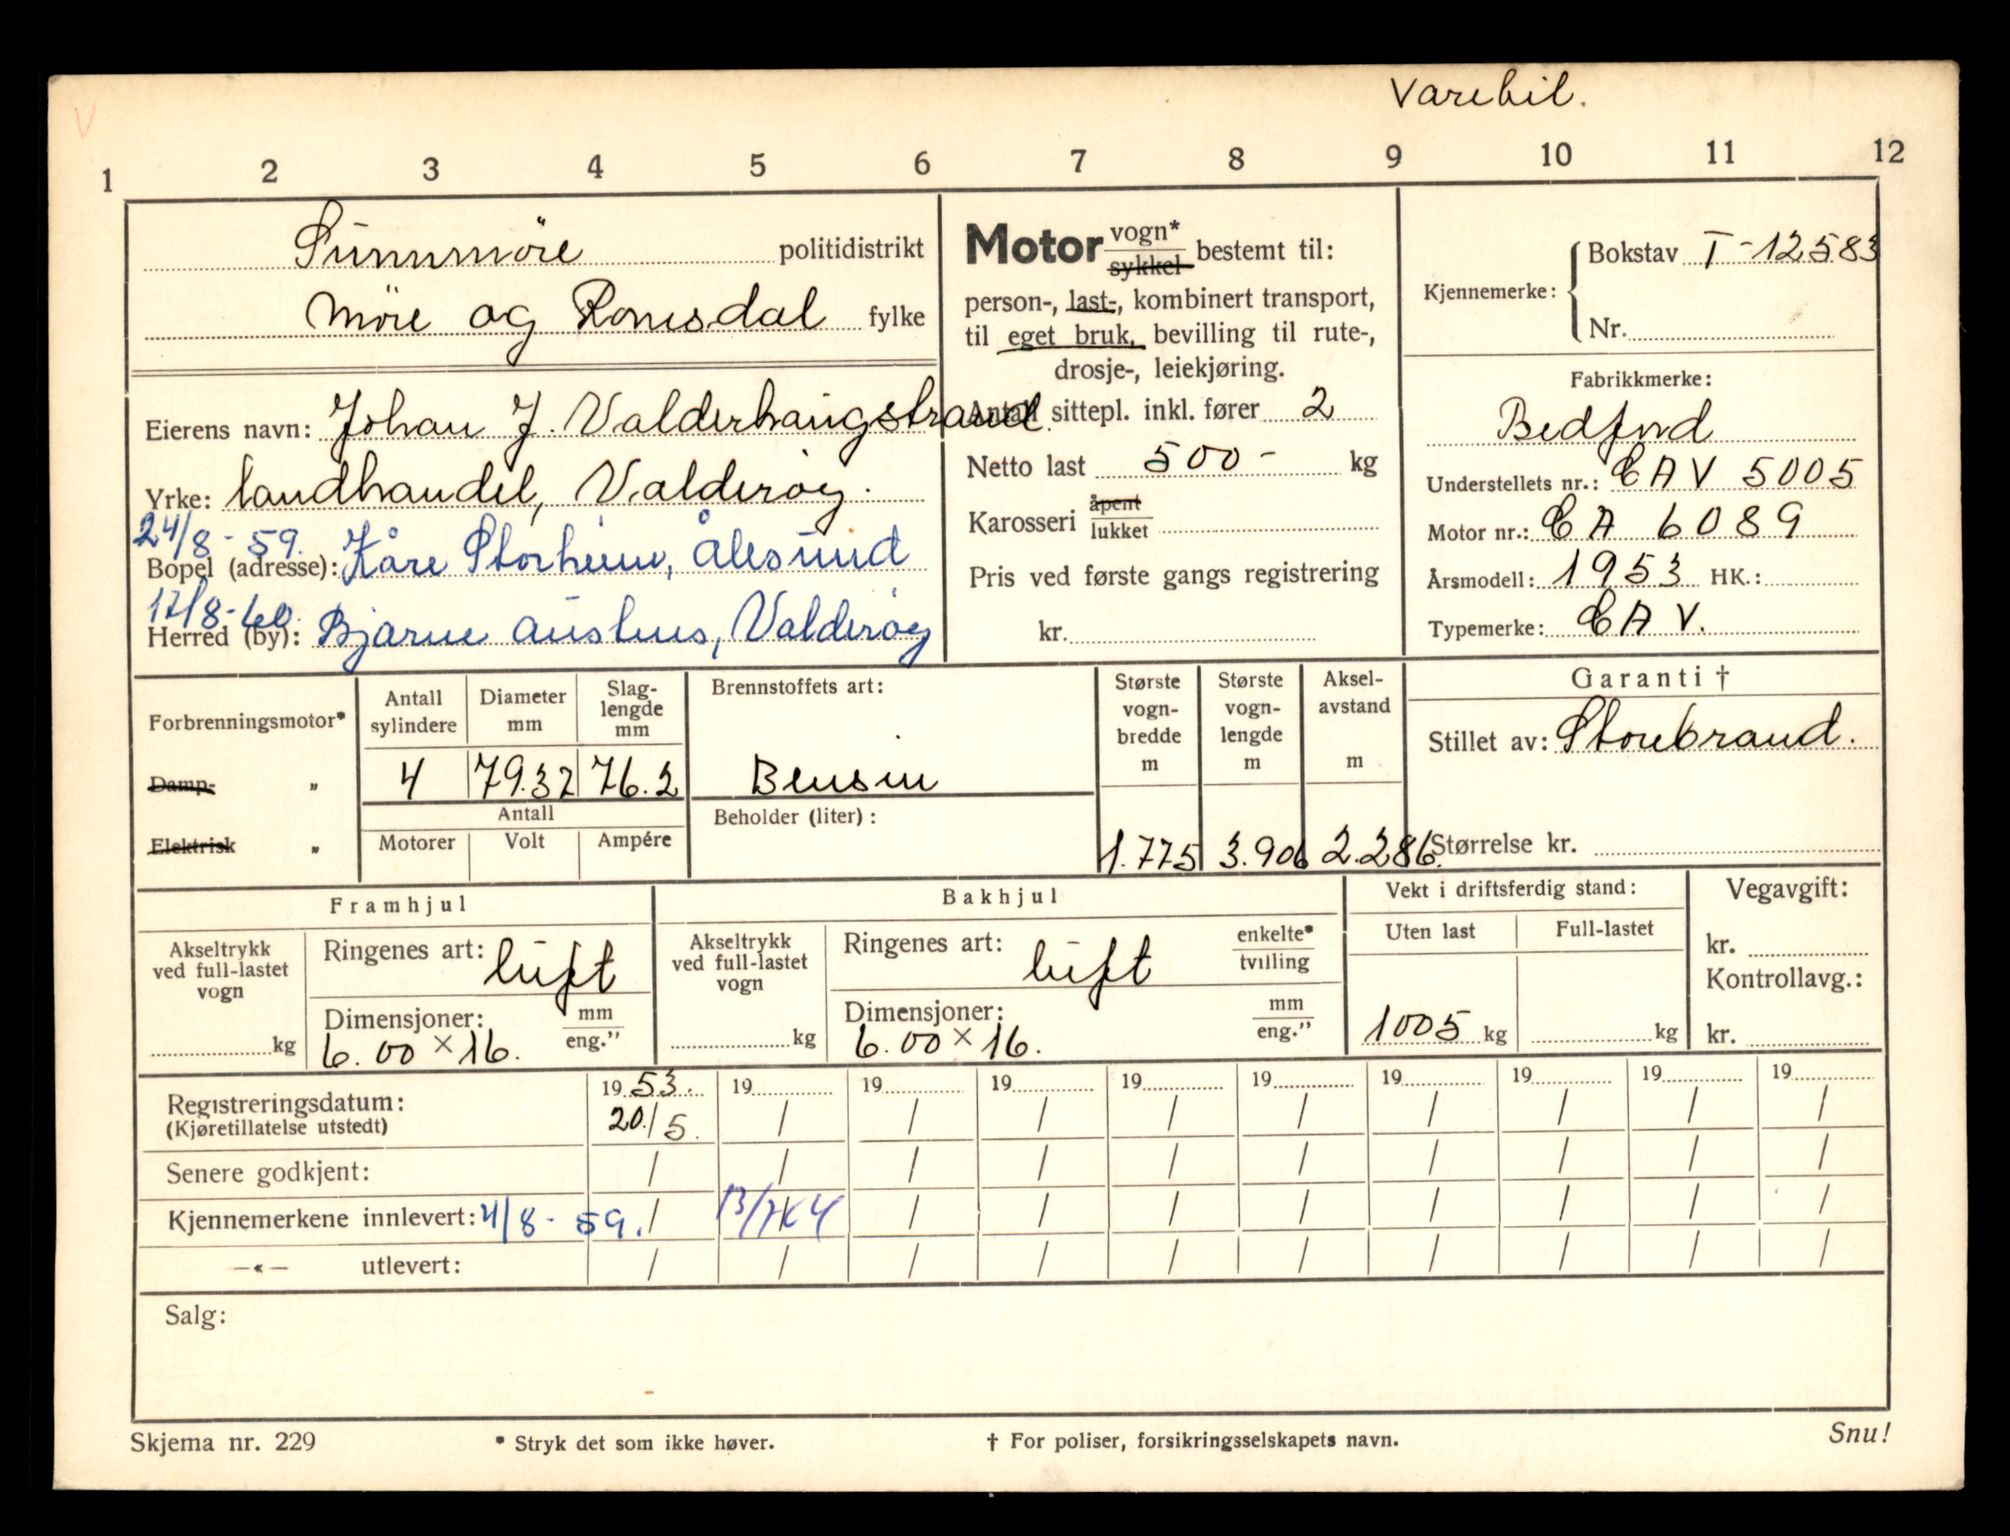 Varebil.
V
1 2 3 4 5 6 7 8 9 10 11 12
Sunnmöre politidistrikt
Möre og Romsdal fylke
Eierens navn: Johan J. Valderhaugstrand
Yrke: landhandel, Valderøy.
24/8-59.
Bopel (adresse): Kåre Storheim, Ålesund
17/8-60.
Herred (by): Bjarne Aushus, Valderøy
Motor vogn* sykkel bestemt til:
person-, last-, kombinert transport,
til eget bruk, bevilling til rute-,
drosje-, leiekjøring.
Antall sittepl. inkl. fører 2
Netto last 500- kg
Karosseri åpent lukket
Pris ved første gangs registrering
kr.
Kjennemerke: Bokstav T-12583
Nr.
Fabrikkmerke:
Bedford
Understellets nr.: EAV 5005
Motor nr.: EA 6089
Årsmodell: 1953 HK.:
Typemerke: EAV.
Forbrenningsmotor*
Damp- „
Elektrisk „
Antall sylindere
Diameter mm
Slag-lengde mm
4 79.37 76.2
Antall
Motorer Volt Ampére
Brennstoffets art:
Bensin
Beholder (liter):
Største vogn-bredde m
Største vogn-lengde m
Aksel-avstand m
1.775 3.906 2.286.
Garanti †
Stillet av: Storebrand.
Størrelse kr.
Framhjul
Akseltrykk
ved full-lastet
vogn
kg
Ringenes art: luft
Dimensjoner: mm eng.”
6.00 × 16.
Bakhjul
Akseltrykk
ved full-lastet
vogn
kg
Ringenes art: luft enkelte* tvilling
Dimensjoner: mm eng.”
6.00 × 16.
Vekt i driftsferdig stand:
Uten last Full-lastet
1005 kg kg
Vegavgift:
kr.
Kontrollavg.:
kr.
1953. 19 19 19 19 19 19 19 19 19
Registreringsdatum: 20./5. / / / / / / / / /
(Kjøretillatelse utstedt)
Senere godkjent: / / / / / / / / / /
Kjennemerkene innlevert: 4/8-59. / / / / / / / / /
—«— utlevert: / / / / / / / / / /
Salg:
Skjema nr. 229
* Stryk det som ikke høver.
† For poliser, forsikringsselskapets navn.
Snu!